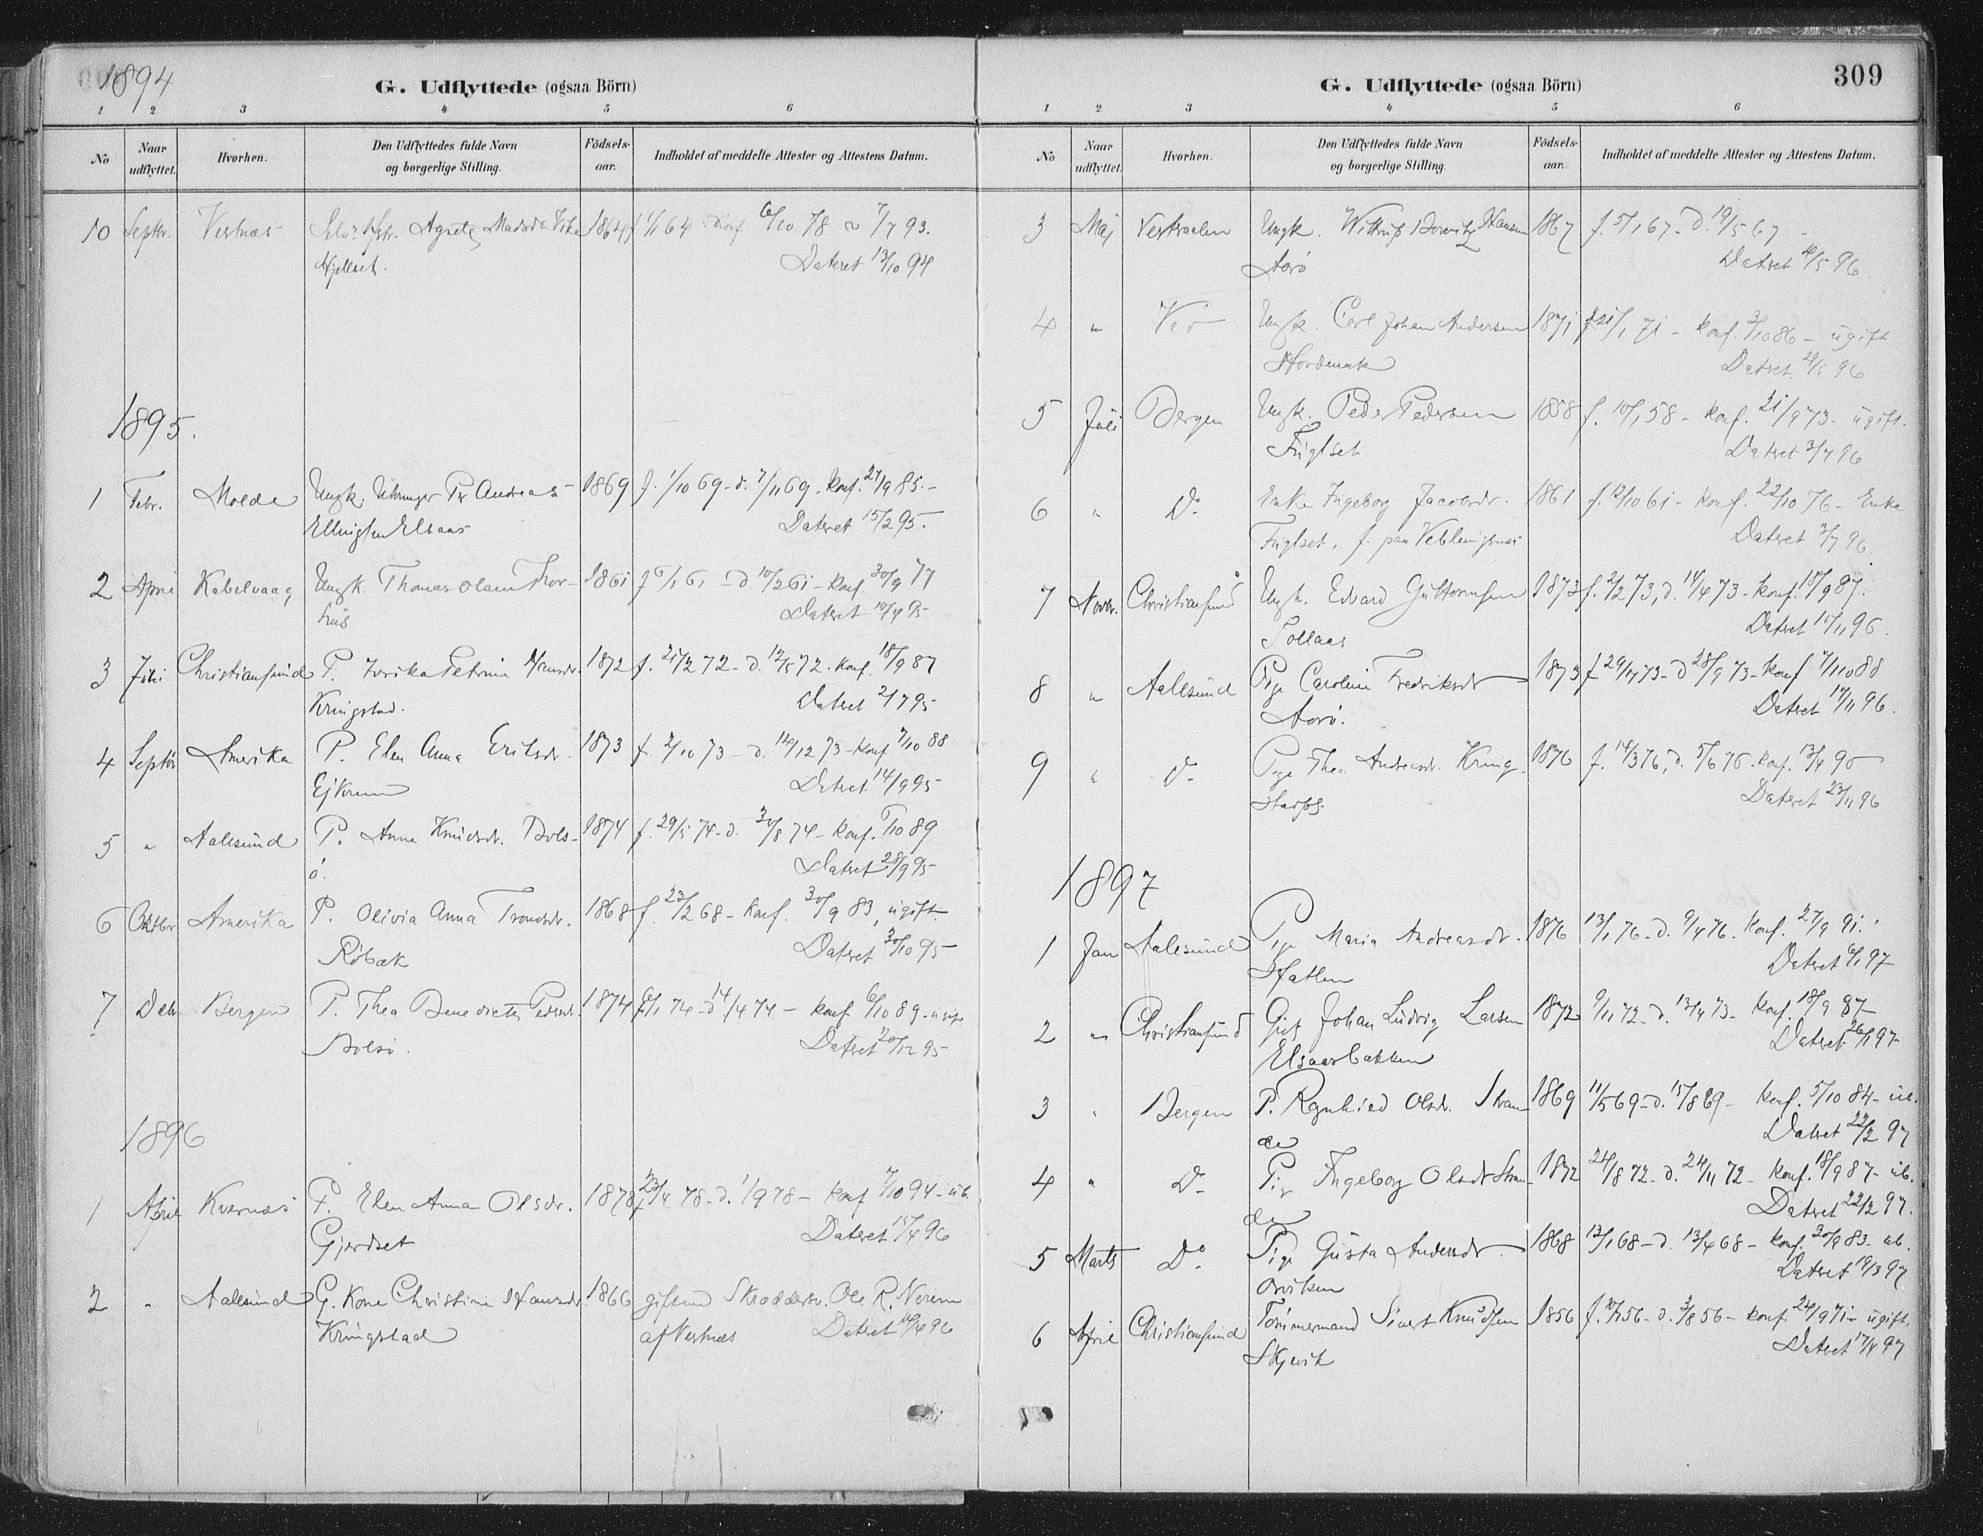 1894
G. Udflyttede (ogsaa Börn)
1 2 3 4 5 6
No Naar udflyttet. Hvorhen. Den Udflyttedes fulde Navn og borgerlige Stilling. Födsels-aar. Indholdet af meddelte Attester og Attestens Datum.
10 Septbr. Vestnæs Agnete Madsdr. 1864 f 1/1 64 Konf 6/10 78 7/7 93.
Hjellset. Dateret 13/10 94
1895.
1 Febr. Molde Ungk. Per Andreas 1869 f. 1/10 69 - d. 7/11 69 - Konf. 27/9 85 -
Ellingsen Elsaas Dateret 15/2 95.
2 April Kabelvaag Ungk. Thomas Olsen Thor- 1861 f 6/1 61 - d 10/2 61 - Konf 30/9 77
hus Dateret 10/4 95
3 Juli Christiansund P. Petrine 1872 f. 21/2 72 - d. 12/5 72 - Konf. 18/9 87
Kringstad. Dateret 2/7 95
4 Septbr Amerika P. Elen Anna Eriksdr. 1873 f. 2/10 73 - d. 14/12 73 - Konf 7/10 88
Ejkrem Dateret 14/9 95
5 " Aalesund P. Anne Knudsdr. Bols- 1874 f. 29/5 74 - d. 30/8 74 - Konf. 6/10 89
ö. Dateret 28/9 95
6 Oktbr Amerika P. Olivia Anna Trondsdr. 1868 f. 23/2 68 - Konf. 30/9 83, ugift.
Röbæk Dateret 30/10 95
7 Decbr Bergen P. Thea Benedicte Pedersdr. 1874 f 6/1 74 - d 14/4 74 - Konf 6/10 89 - ugift
Bolsö. Dateret 20/12 95
1896
1 April Kvernæs P. Elen Anna Olsdr. 1878 f 23/4 78 - d. 1/9 78 - Konf 7/10 94 - ub.
Gjerdset Dateret 15/4 96
2 " Aalesund G. Kone Christine Hansdr. 1866 gift med Skræddersv. Ole R. Nerem
Kringstad af Vestnæs Dateret 16/4 96
309
G. Udflyttede (ogsaa Börn)
1 2 3 4 5 6
No Naar udflyttet. Hvorhen. Den Udflyttedes fulde Navn og borgerlige Stilling. Födsels-aar. Indholdet af meddelte Attester og Attestens Datum.
3 Maj Vestraalen Ungk. Hansen 1867 f. 5/1 67 - d. 19/5 67 -
Aarö Dateret 10/5 96.
4 " Veö Ungk. Carl Johan Andersen 1871 f 21/1 71 - Konf. 3/10 86 - ugift
Nordenak Dateret 29/5 96
5 Juli Bergen Ungk. Peder Pedersen 1858 f. 10/1 58 - Konf. 21/9 73 - ugift.
Fuglset Dateret 3/7 96
6 " Do Enke Ingeborg Jacobsdr. 1861 f. 12/10 61 - Konf. 22/10 76 - Enke
Fuglset, f. paa Veblungsnæs Dateret 3/7 96.
7 Novbr. Christiansund Ungk. Edvard Guttormsen 1873 f. 2/2 73, d. 14/4 73 - Konf. 18/9 87.
Sollaas Dateret 10/11 96.
8 " Aalesund Pige Caroline Fredriksdr 1873 f 29/4 73 - d 28/9 73 - Konf 7/10 88
Aarö. Dateret 17/11 96.
9 " Do Pige Thea Andreasdr. Kring- 1876 f. 14/3 76, d. 5/6 76 - Konf. 13/4 90
Dateret 23/11 96
1897
1 Jan Aalesund Pige Maria Andreasdr. 1876 13/1 76 - d. 9/4 76. Konf. 27/9 91.
Hatlen Dateret 6/1 97
2 " Christiansund Gift Johan Ludvig Larsen 1872 9/11 72 - d. 13/4 73 - Konf. 18/9 87
Elsaasbakken Dateret 26/1 97
3 " Bergen P. Ragnhild Olsdr. Stran- 1869 11/5 69 - d. 15/8 69 - Konf. 5/10 84 - ub.
de Dateret 22/2 97
4 " Do Pige Ingeborg Olsdr Stran- 1872 24/8 72 - d. 24/11 72 - Konf. 18/9 87 - ub.
de Dateret 22/2 97.
5 Marts Do Pige Gusta Andersdr. 1868 12/1 68 - d. 13/4 68 - Konf. 30/9 83 - ub.
Orviken Dateret 19/3 97
6 April Christiansund Tömmermand Sivert Knudsen 1856 f. 10/7 56 - d. 3/8 56 - Konf. 24/9 71 - ugift.
Skjevik Dateret 17/4 97